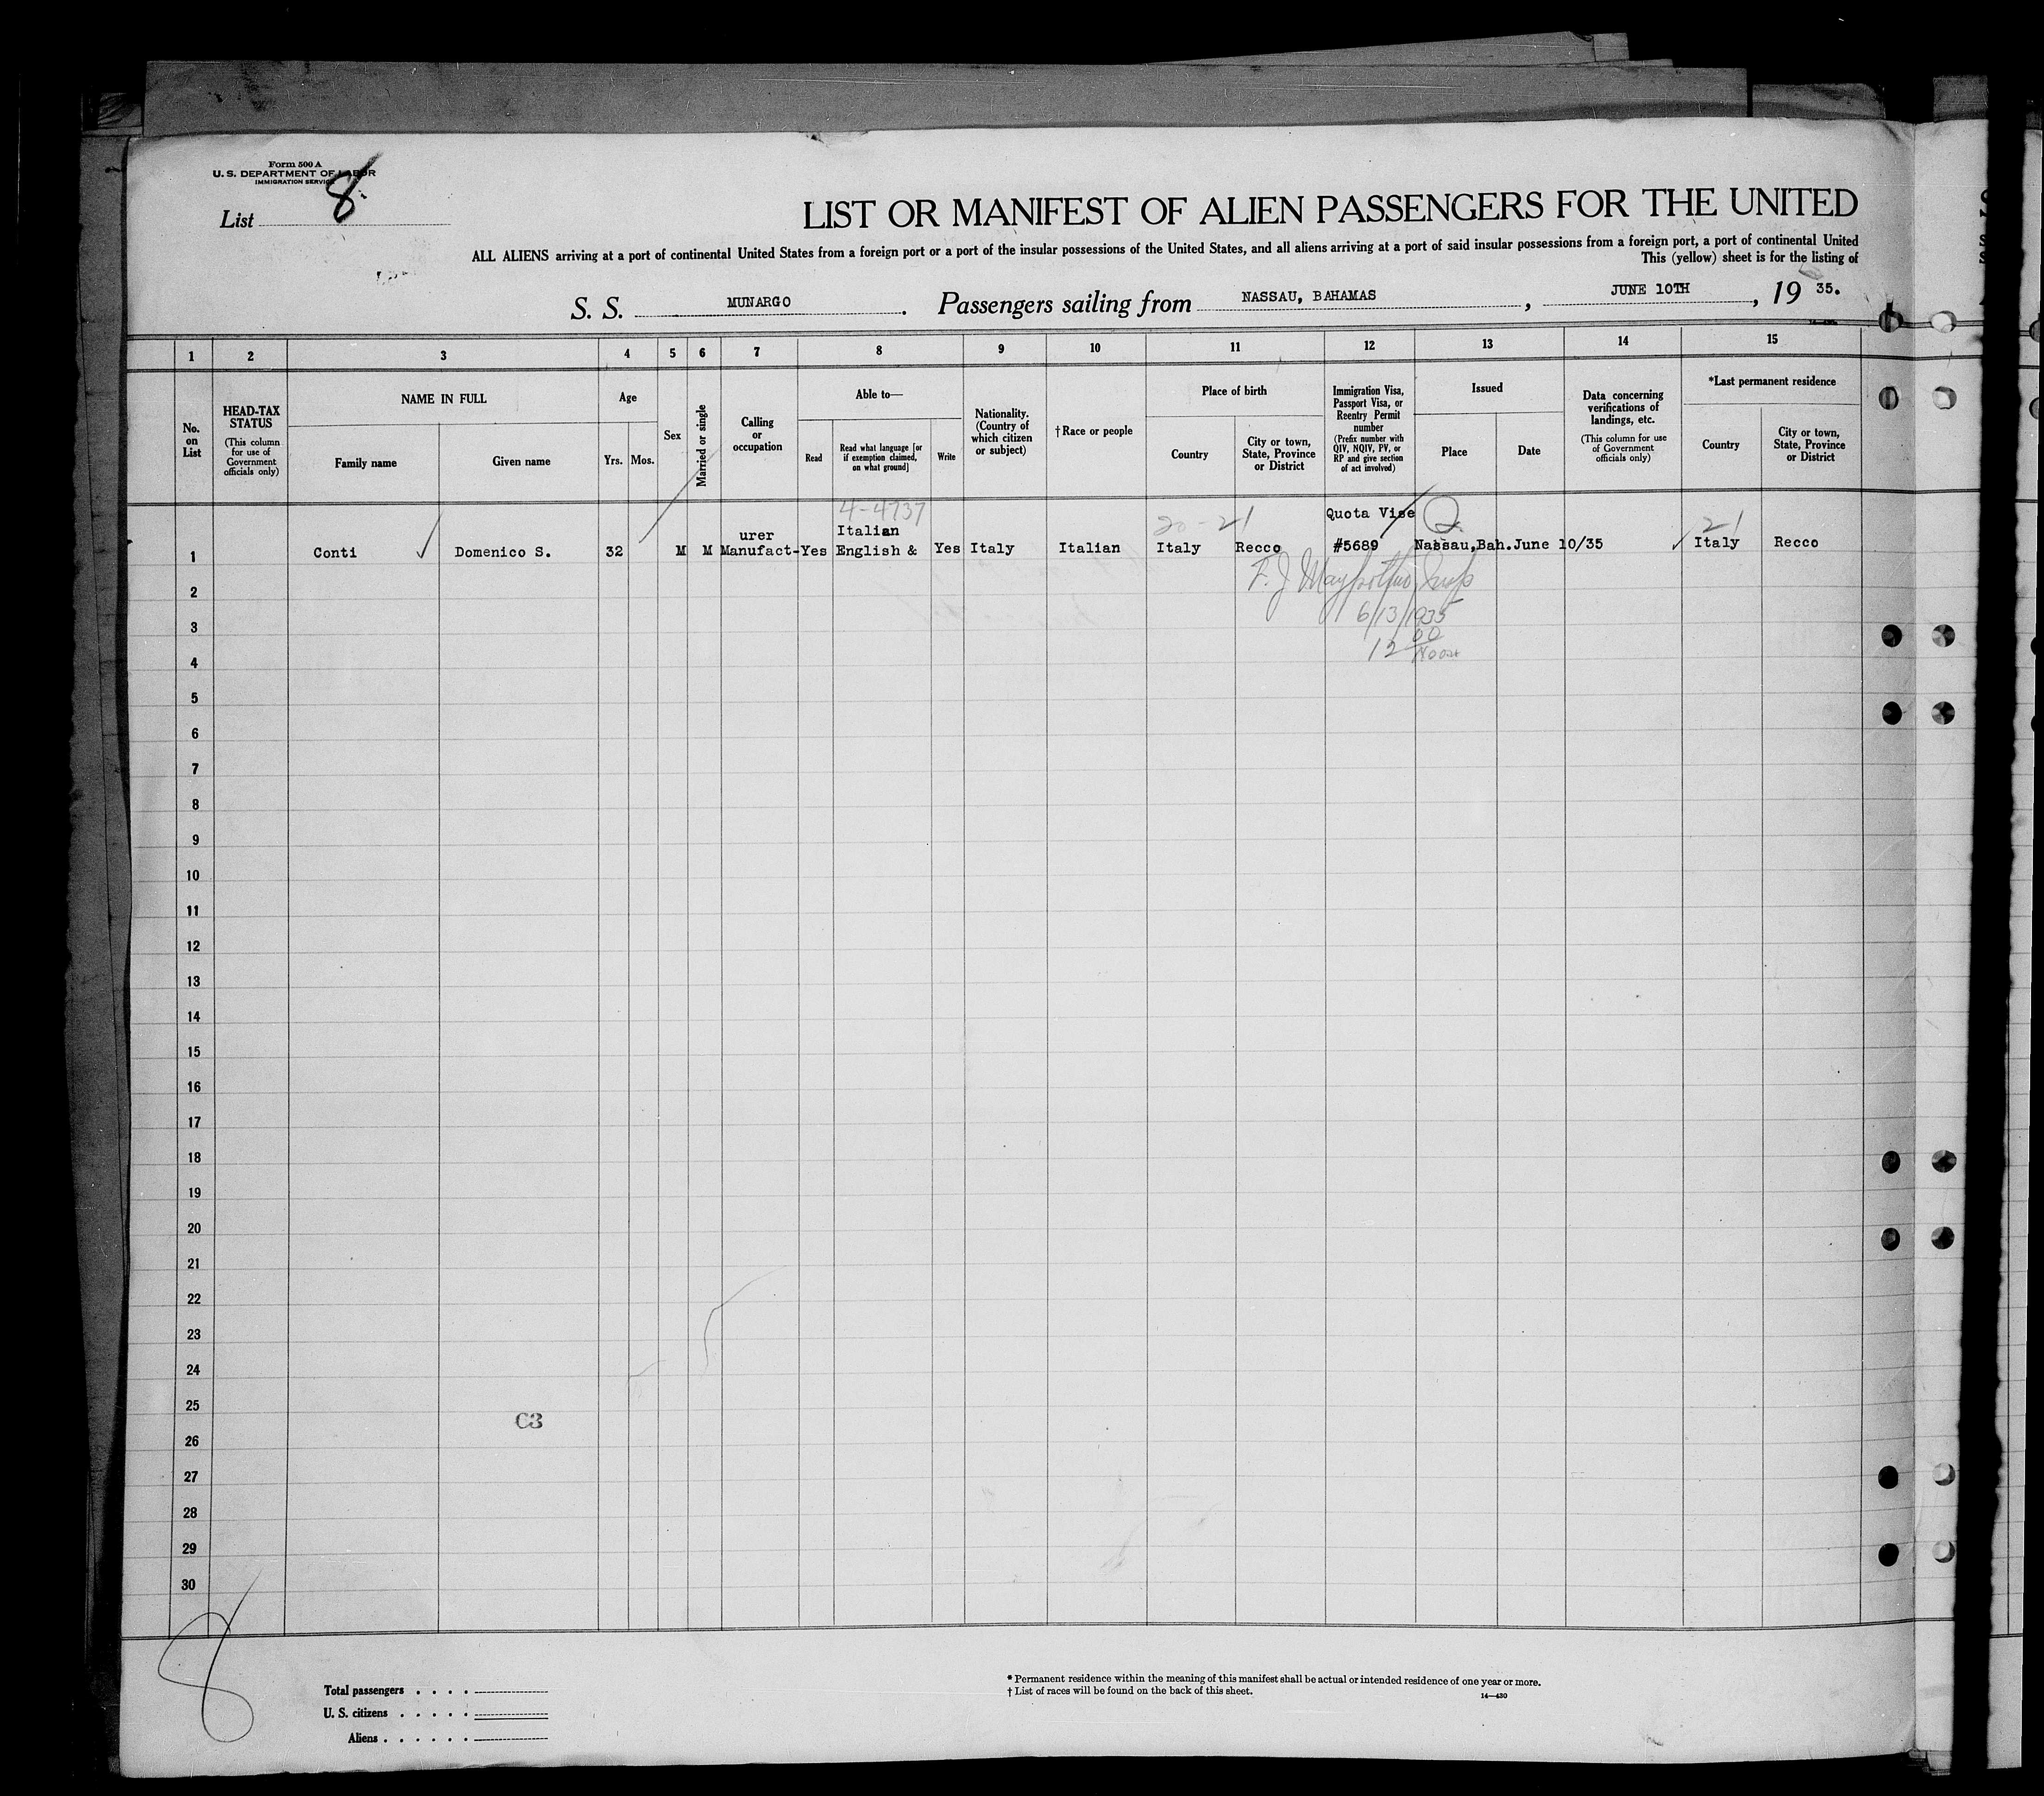 Form 500 A
U. S. DEPARTMENT OF LABOR
IMMIGRATION SERVICE
List 8
LIST OR MANIFEST OF ALIEN PASSENGERS FOR THE UNITED
ALL ALIENS arriving at a port of continental United States from a foreign port or a port of the insular possessions of the United States, and all aliens arriving at a port of said insular possessions from a foreign port, a port of continental United
This (yellow) sheet is for the listing of
S. S. MUNARGO. Passengers sailing from NASSAU, BAHAMAS, JUNE 10TH, 19 35.
1 2 3 4 5 6 7 8 9 10 11 12 13 14 15
No. on List
HEAD-TAX STATUS
(This column for use of Government officials only)
NAME IN FULL
Family name
Given name
Age
Yrs. Mos.
Sex
Married or single
Calling or occupation
Able to—
Read
Read what language [or if exemption claimed, on what ground]
Write
Nationality. (Country of which citizen or subject)
†Race or people
Place of birth
Country
City or town, State, Province or District
Immigration Visa, Passport Visa, or Reentry Permit number
(Prefix number with QIV, NQIV, PV, or RP and give section of act involved)
Issued
Place
Date
Data concerning verifications of landings, etc.
(This column for use of Government officials only)
*Last permanent residence
Country
City or town, State, Province or District
4-4737 20-21 Quota Vise Q. 21
urer Italian
1 Conti Domenico S. 32 M M Manufact- Yes English & Yes Italy Italian Italy Recco #5689 Nassau,Bah. June 10/35 Italy Recco
F. J.
2
6/13/1935
3
12 00 Noon
4
5
6
7
8
9
10
11
12
13
14
15
16
17
18
19
20
21
22
23
24
25
C3
26
27
28
29
30
8
Total passengers
U. S. citizens
Aliens
* Permanent residence within the meaning of this manifest shall be actual or intended residence of one year or more.
† List of races will be found on the back of this sheet.
14—430